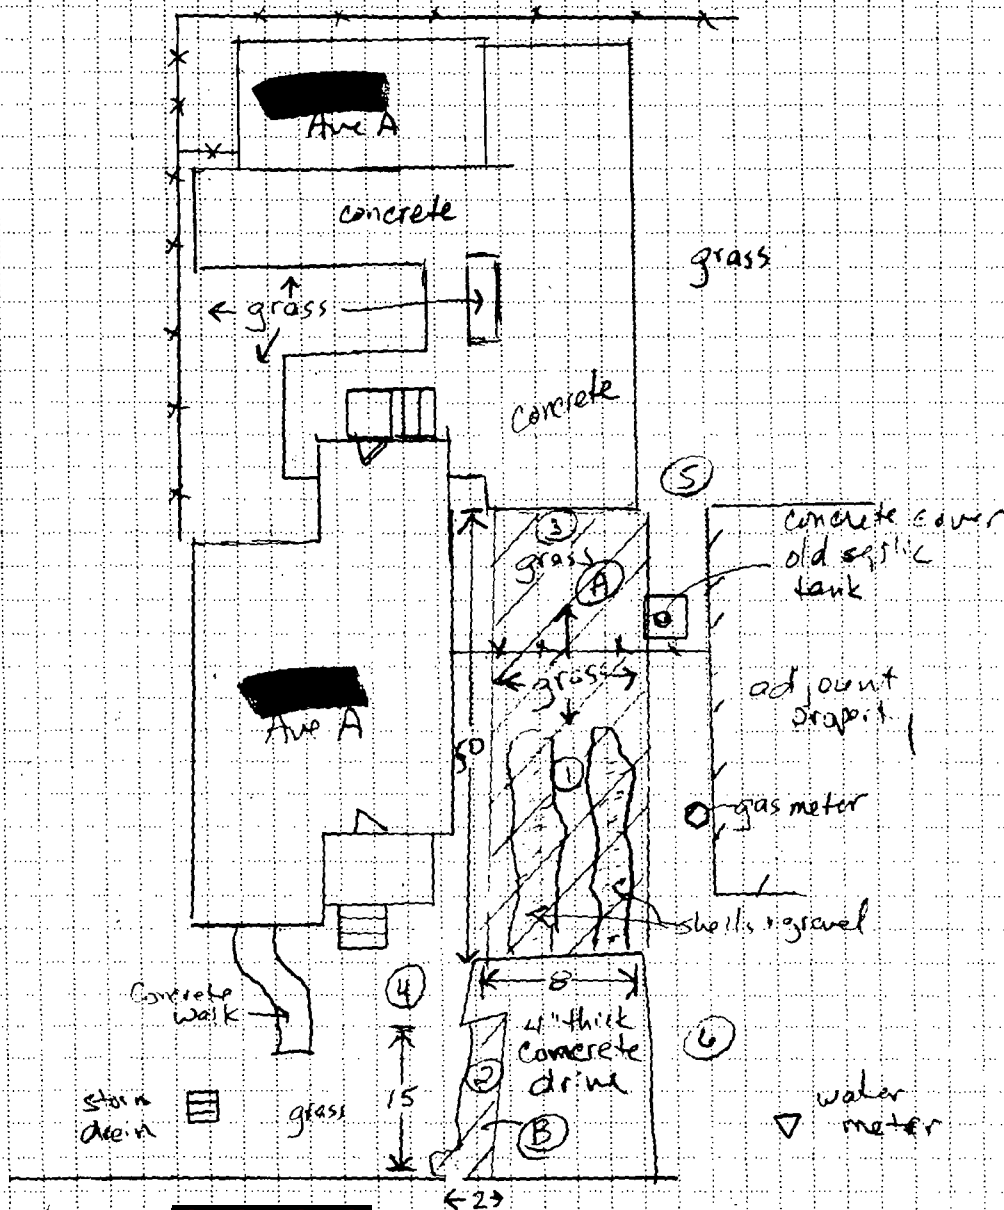 Ave A
concrete
grass
grass
concrete
5
3
grass
A
concrete cover
old septic
tank
grass
adjacent
propert
Ave A
50
1
gas meter
shells + gravel
8
4
Concrete
walk
4" thick
concrete
drive
6
2
15
storm
drain
grass
B
water
meter
2